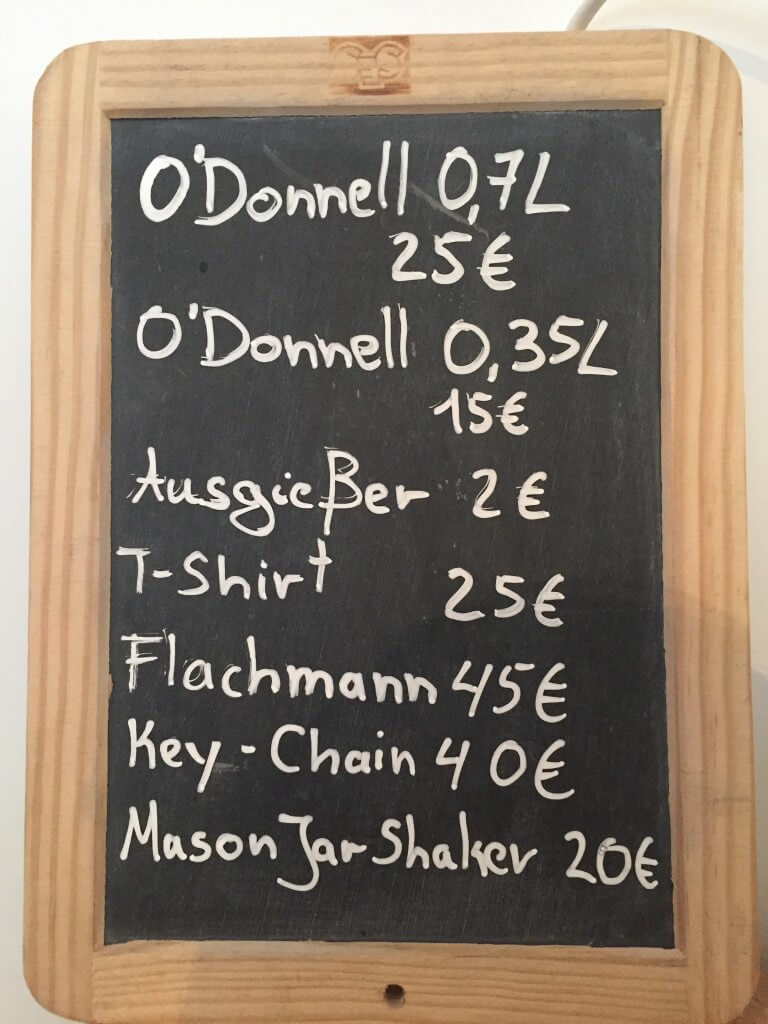 O'Donnell 0,7L
25€
O'Donnell 0,35L
15€
Ausgießer 2€
T-Shirt 25€
Flachmann 45€
Key-Chain 40€
Mason Jar Shaker 20€